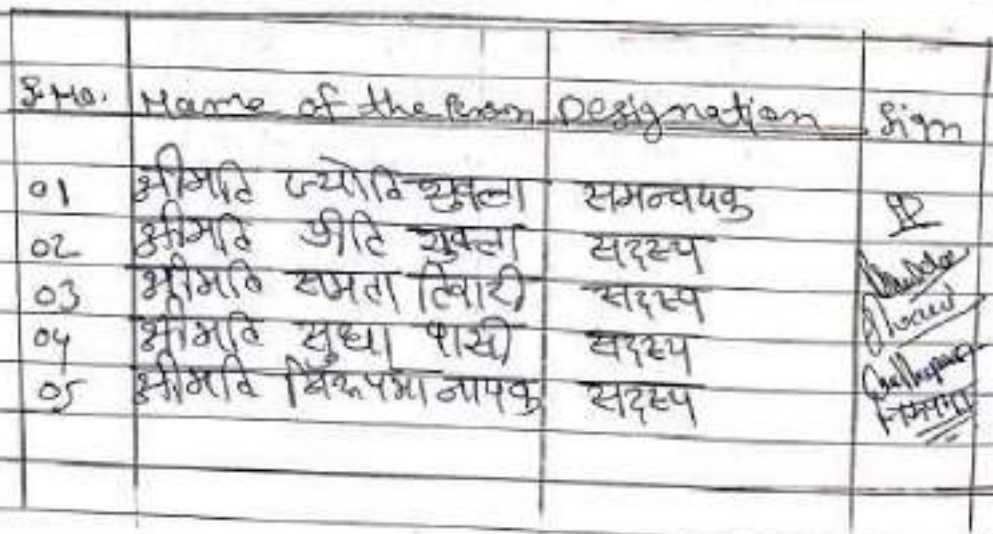 S.No. Name of the Person Designation Sign
01 श्रीमति ज्योति शुक्ला समन्वयक
02 श्रीमति प्रीति शुक्ला सदस्य
03 श्रीमति समता तिवारी सदस्य
04 श्रीमति सुधा पासी सदस्य
05 श्रीमति निरूपमा नायक सदस्य